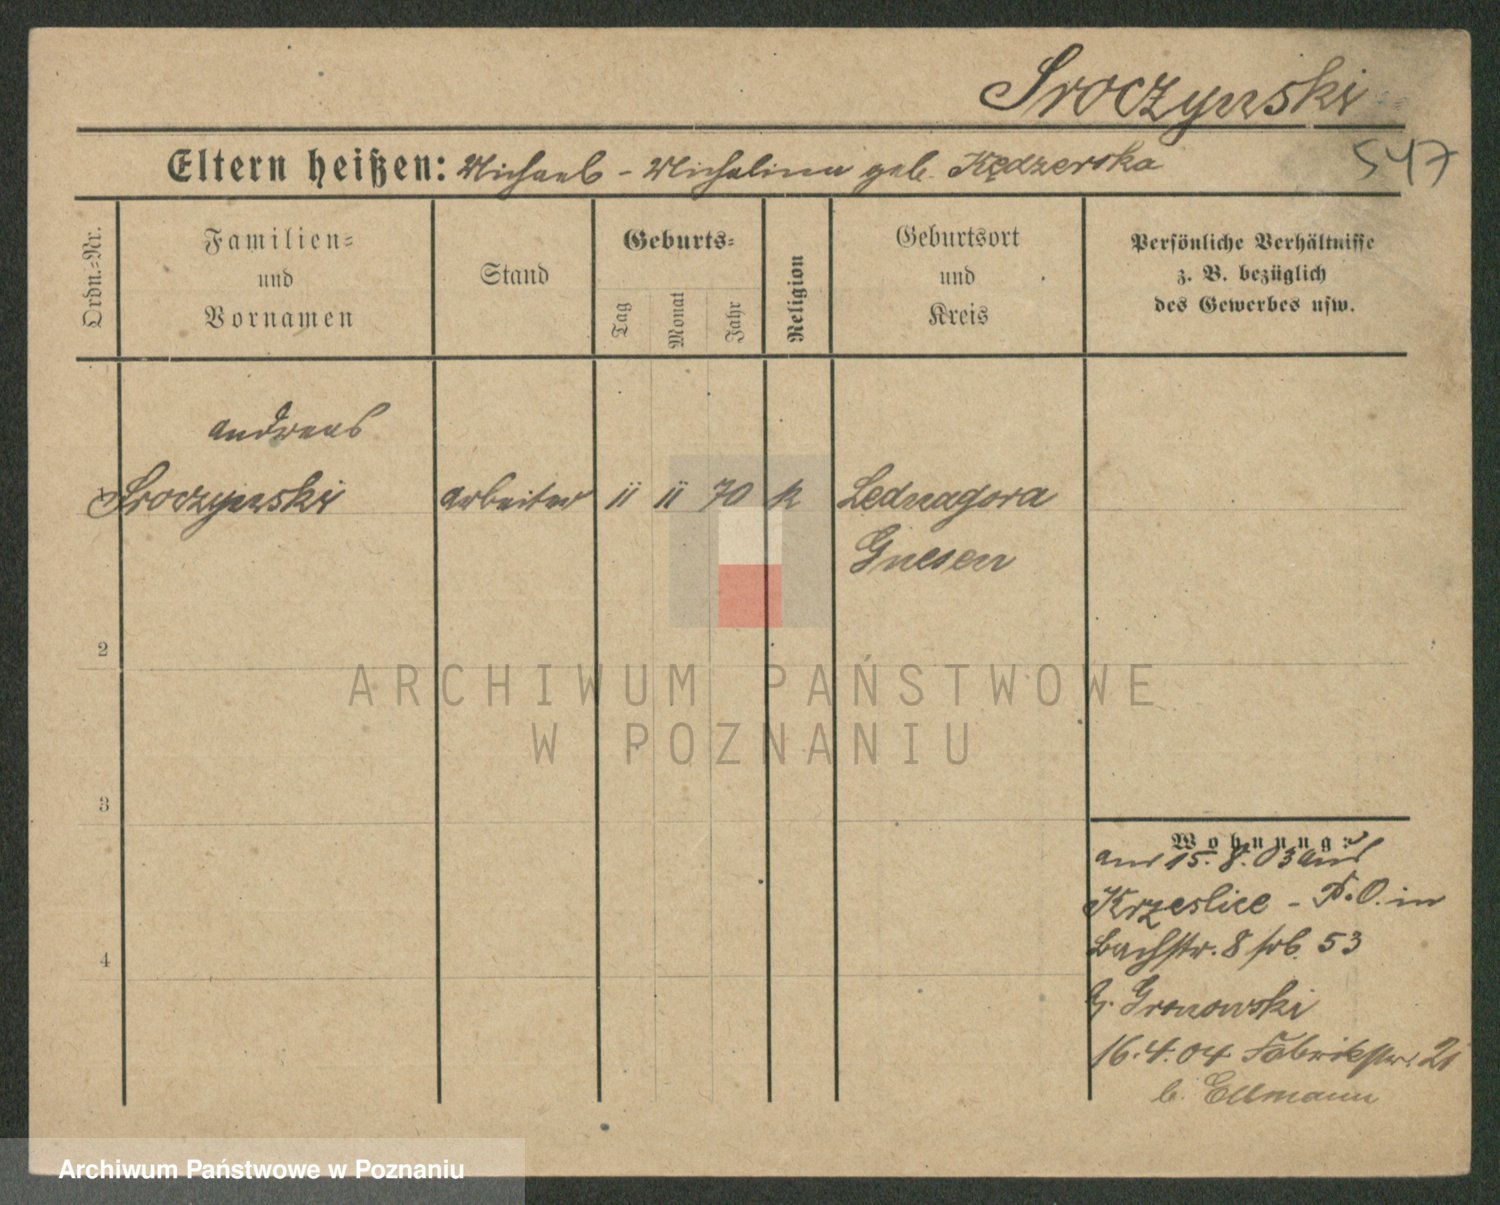 Sroczynski
547
Eltern heißen: Michael - Michalina geb. Kędzerska
Ordn.-Nr.
Familien-
und
Vornamen
Stand
Geburts-
Tag
Monat
Jahr
Religion
Geburtsort
und
Kreis
Persönliche Verhältnisse
z. B. bezüglich
des Gewerbes usw.
Andreas
1 Sroczynski Arbeiter 11 11 70 k Lednagora
Gnesen
2
3
4
Wohnung:
am 15.8.03 aus
Krzeslice - P.O. in
Bachstr. 8 53
b. Gronowski
16.4.04 Fabrikstr. 21
b. Ellmann
ARCHIWUM PAŃSTWOWE
W POZNANIU
Archiwum Państwowe w Poznaniu